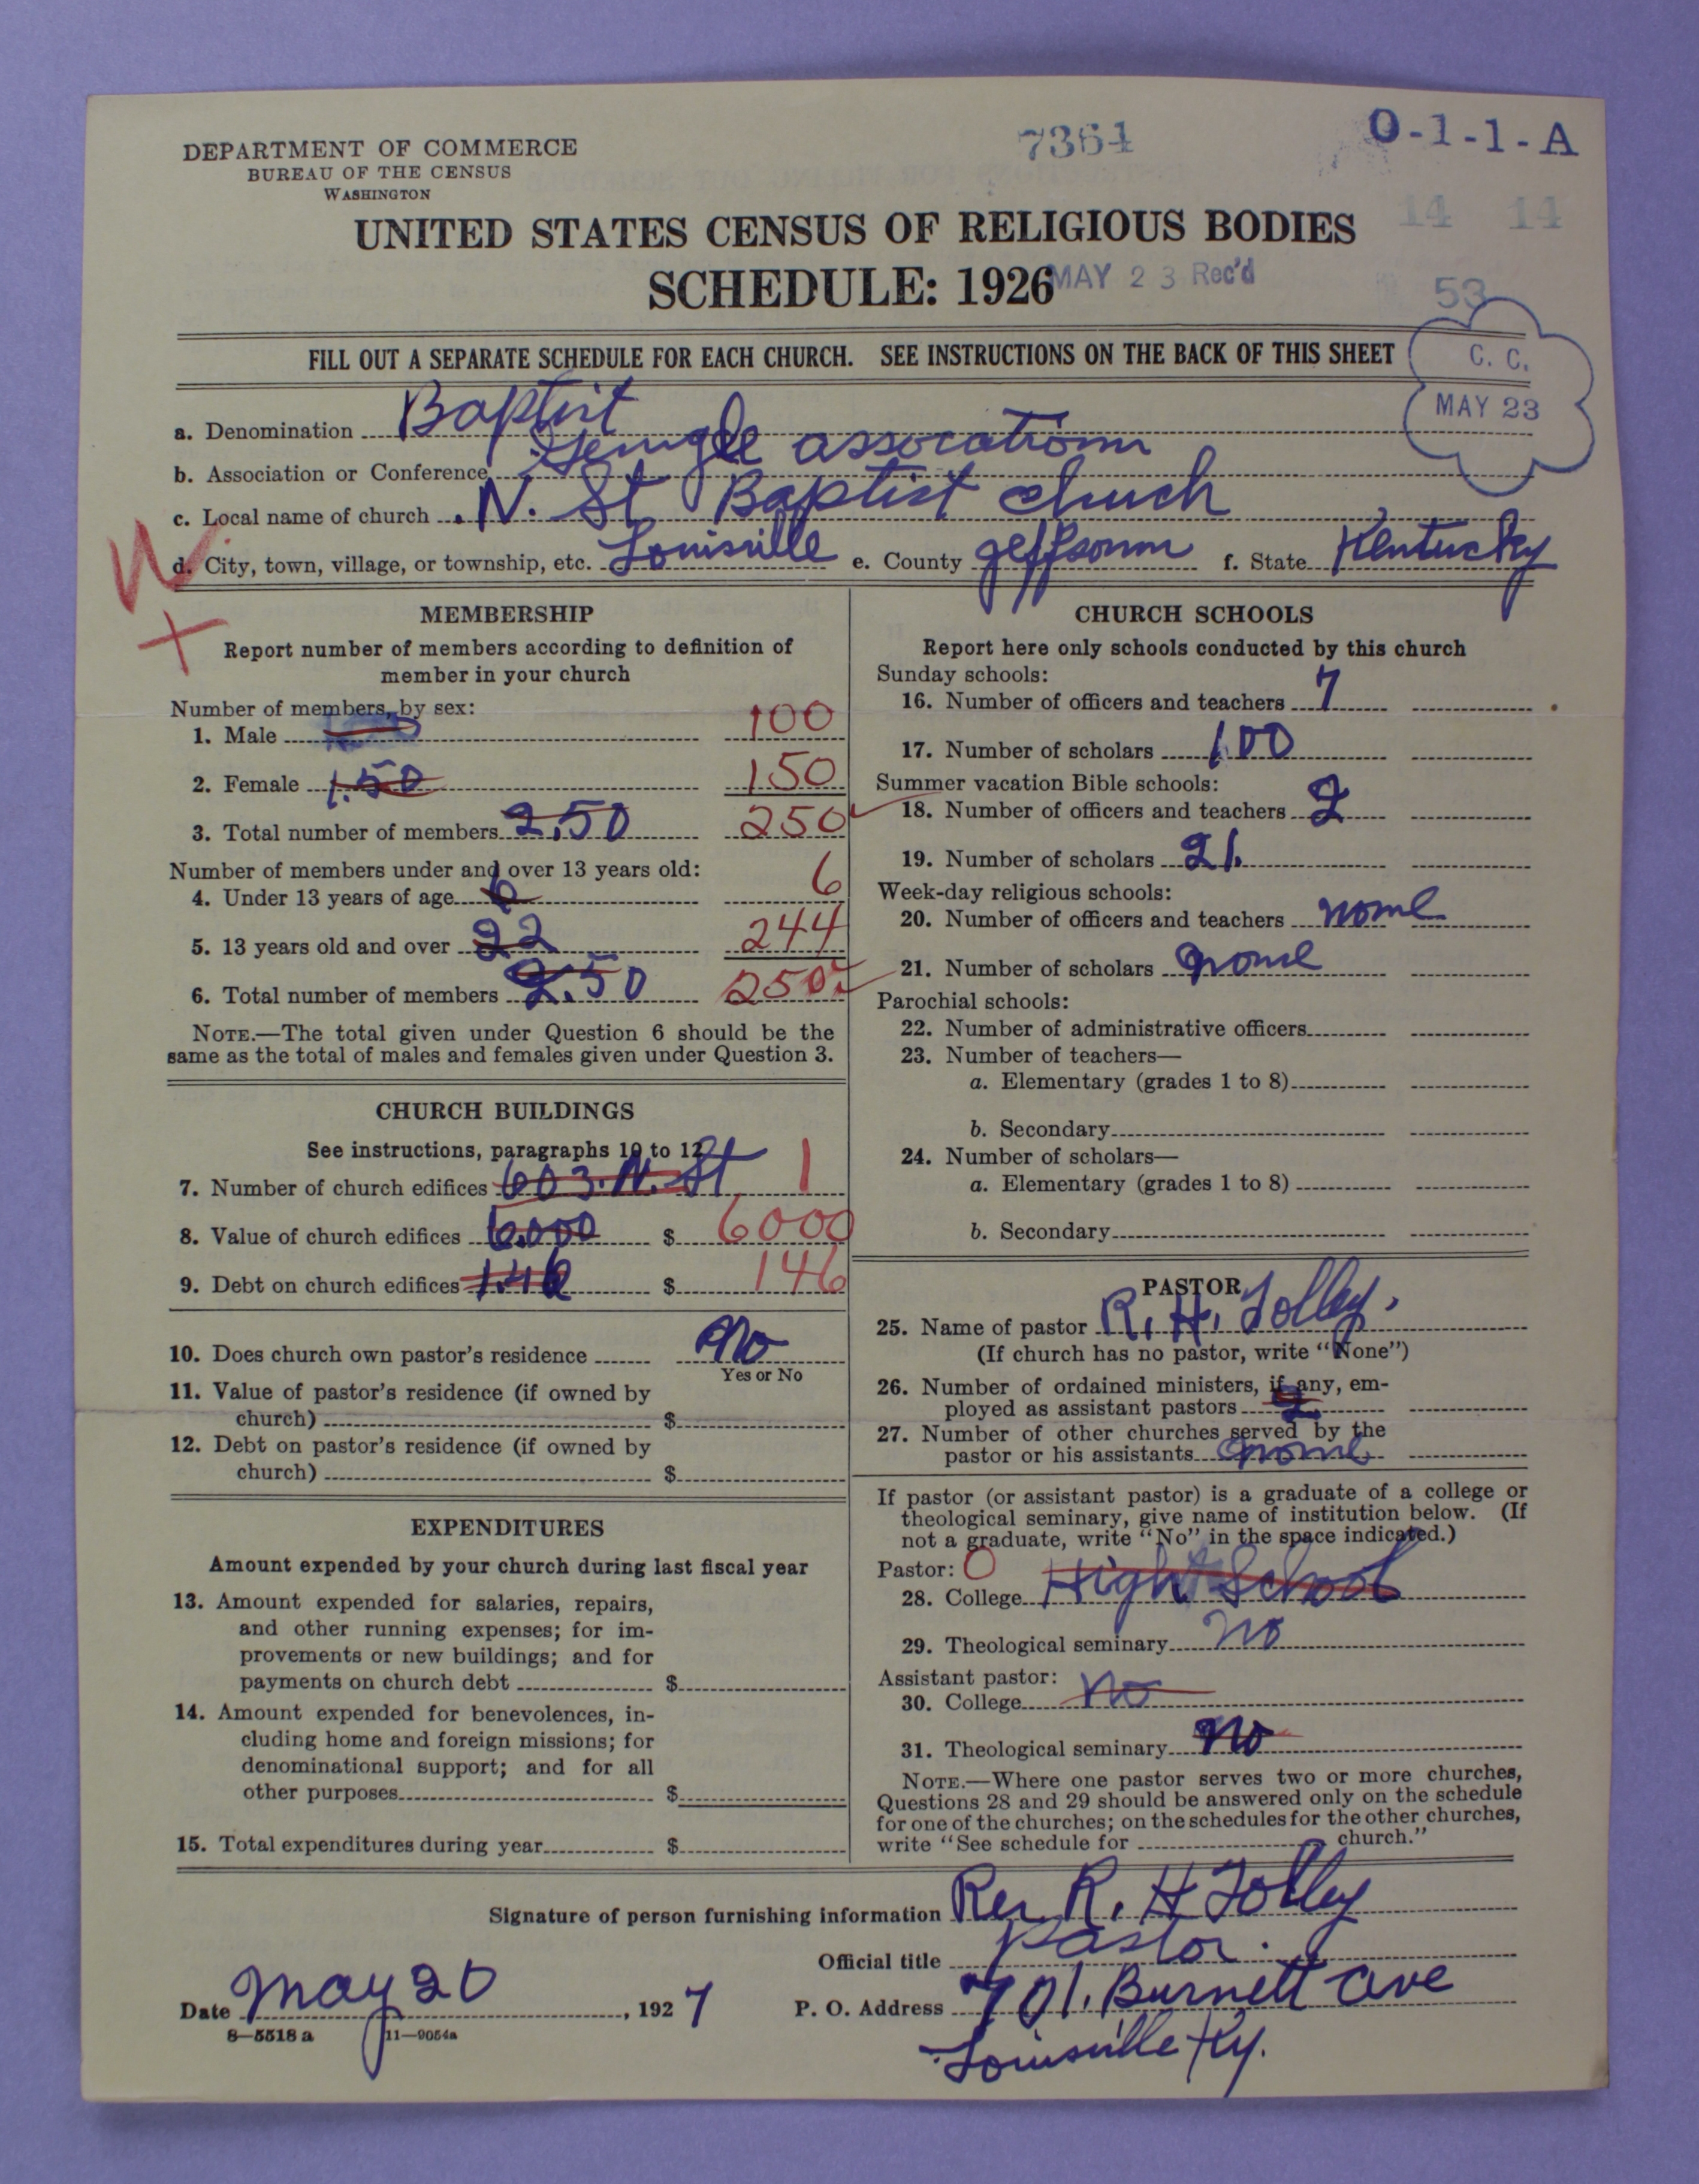 DEPARTMENT OF COMMERCE
BUREAU OF THE CENSUS
WASHINGTON
7364
O-1-1-A
14 14
UNITED STATES CENSUS OF RELIGIOUS BODIES
SCHEDULE: 1926
MAY 23 Rec'd
53
FILL OUT A SEPARATE SCHEDULE FOR EACH CHURCH. SEE INSTRUCTIONS ON THE BACK OF THIS SHEET
C. C.
MAY 23
a. Denomination Baptist
b. Association or Conference assocationn
c. Local name of church N. St Baptist chuch
W
d. City, town, village, or township, etc. Louisville e. County jeffsonn f. State Kentucky
+
MEMBERSHIP
Report number of members according to definition of
member in your church
Number of members, by sex:
1. Male 100
2. Female 1.50 150
3. Total number of members 2.50 250
Number of members under and over 13 years old:
4. Under 13 years of age 6 6
5. 13 years old and over 22 244
6. Total number of members 2.50 250
NOTE.—The total given under Question 6 should be the
same as the total of males and females given under Question 3.
CHURCH BUILDINGS
See instructions, paragraphs 10 to 12
7. Number of church edifices 603. N. St 1
8. Value of church edifices 6.000 $ 6000
9. Debt on church edifices 1.46 $ 146
10. Does church own pastor's residence no
Yes or No
11. Value of pastor's residence (if owned by
church) $
12. Debt on pastor's residence (if owned by
church) $
EXPENDITURES
Amount expended by your church during last fiscal year
13. Amount expended for salaries, repairs,
and other running expenses; for im-
provements or new buildings; and for
payments on church debt $
14. Amount expended for benevolences, in-
cluding home and foreign missions; for
denominational support; and for all
other purposes $
15. Total expenditures during year $
CHURCH SCHOOLS
Report here only schools conducted by this church
Sunday schools:
16. Number of officers and teachers 7
17. Number of scholars 100
Summer vacation Bible schools:
18. Number of officers and teachers 2
19. Number of scholars 21.
Week-day religious schools:
20. Number of officers and teachers none
21. Number of scholars none
Parochial schools:
22. Number of administrative officers
23. Number of teachers—
a. Elementary (grades 1 to 8)
b. Secondary
24. Number of scholars—
a. Elementary (grades 1 to 8)
b. Secondary
PASTOR
25. Name of pastor R. H. Tolley.
(If church has no pastor, write "None")
26. Number of ordained ministers, if any, em-
ployed as assistant pastors 2
27. Number of other churches served by the
pastor or his assistants none
If pastor (or assistant pastor) is a graduate of a college or
theological seminary, give name of institution below. (If
not a graduate, write "No" in the space indicated.)
Pastor: O
28. College High School
29. Theological seminary no
Assistant pastor:
30. College no
31. Theological seminary no
NOTE.—Where one pastor serves two or more churches,
Questions 28 and 29 should be answered only on the schedule
for one of the churches; on the schedules for the other churches,
write "See schedule for church."
Signature of person furnishing information Rev R. H Tolley
Official title Pastor.
Date may 20, 1927 P. O. Address 701. Burnett ave
8—5518 a 11—9054a
Louisville Ky.